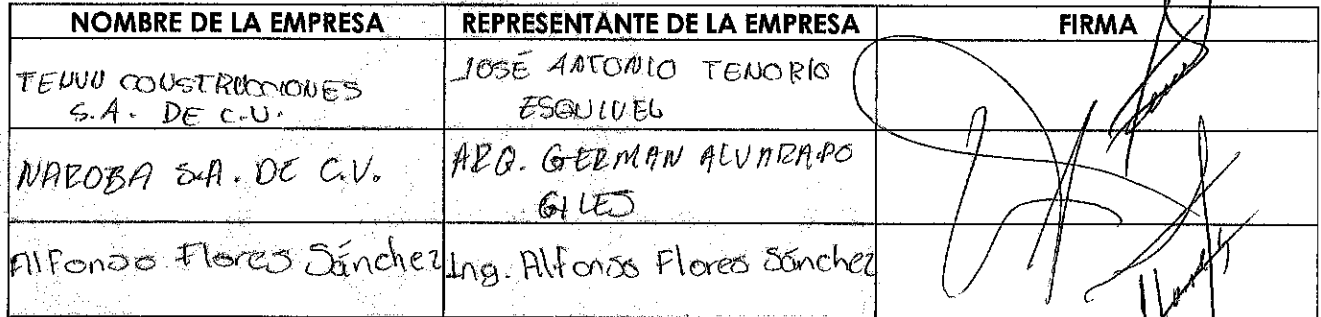 NOMBRE DE LA EMPRESA REPRESENTANTE DE LA EMPRESA FIRMA
CONSTRUCCIONES JOSÉ ANTONIO TENORIO
S.A. DE C.V. ESQUIVEL
NAROBA S.A. DE C.V. ARQ. GERMAN ALVARADO
GILES
Alfonso Flores Sánchez Ing. Alfonso Flores Sánchez